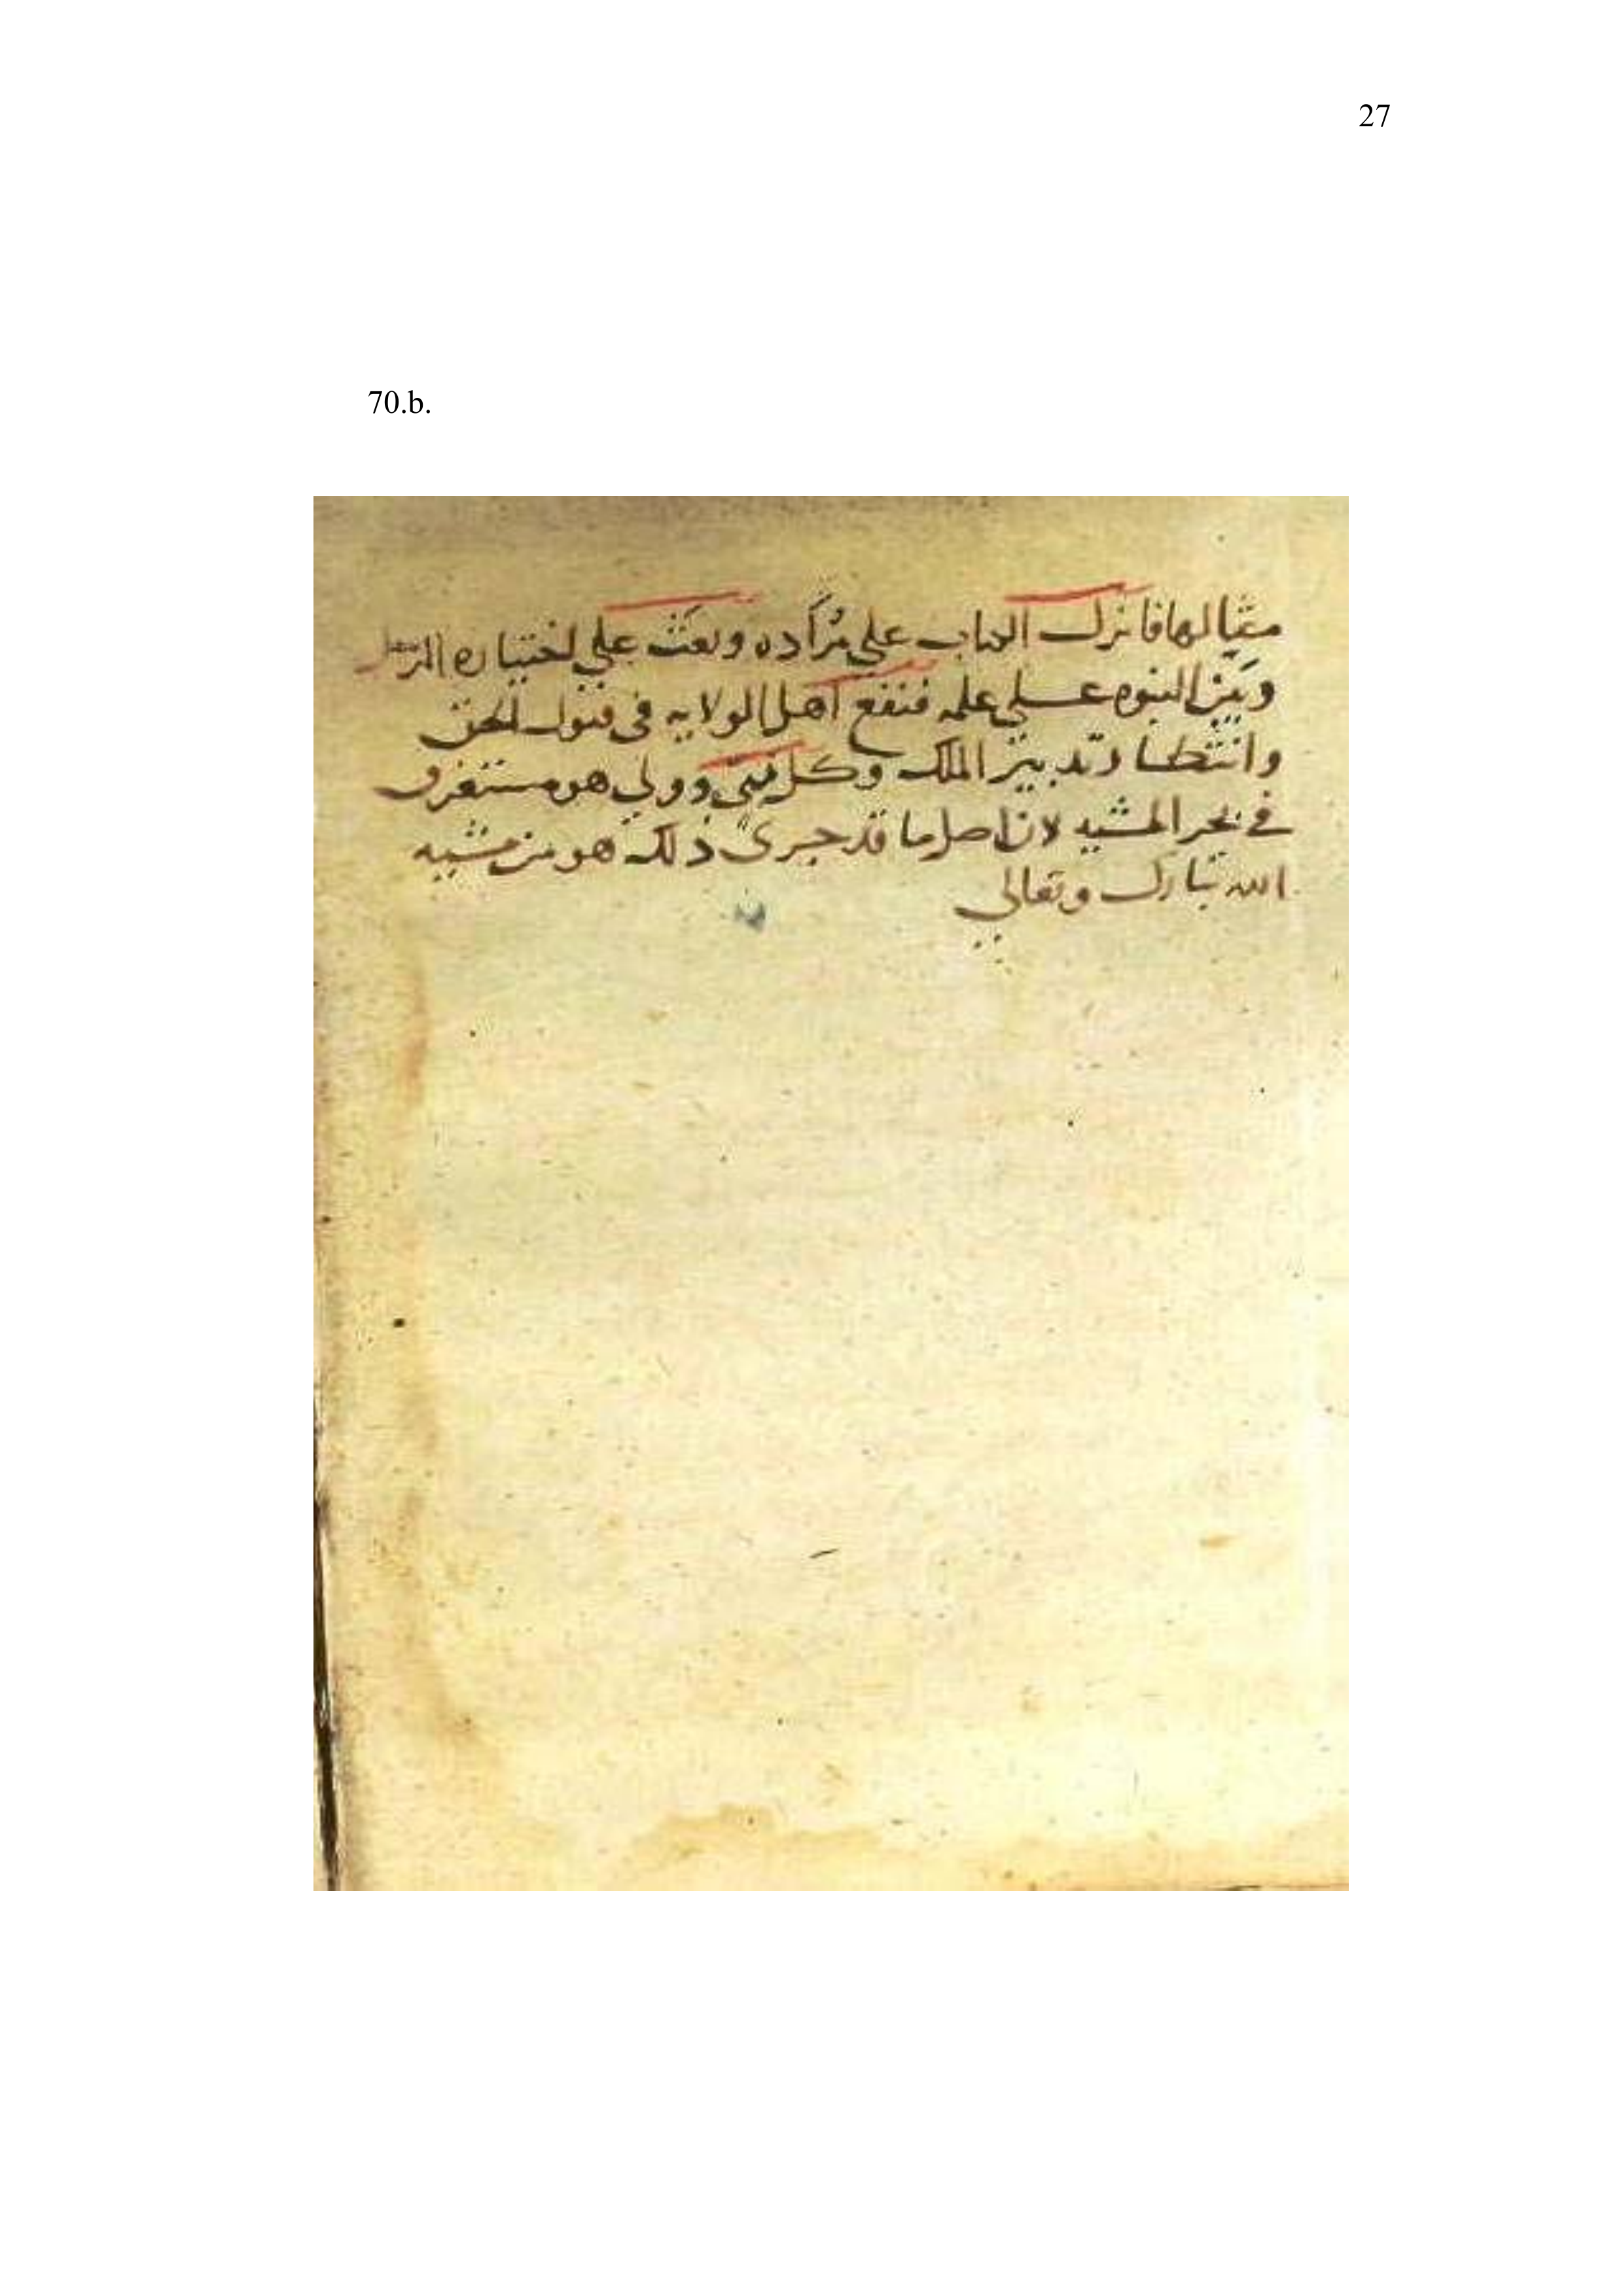 27
70.b.
مشيا لها فانزل الكتاب على مُرَاده وبعَث علي اختياره
وبَيّن النبوه علي علمه فنفع اهل الولايه في قبول الحق
وانتظار تدبير الملك وكل نبيّ وولي هو مستغرق
في بحر المشيه لان اصل ما قد جرى ذلك هو من مشيه
الله تبارك وتعالي